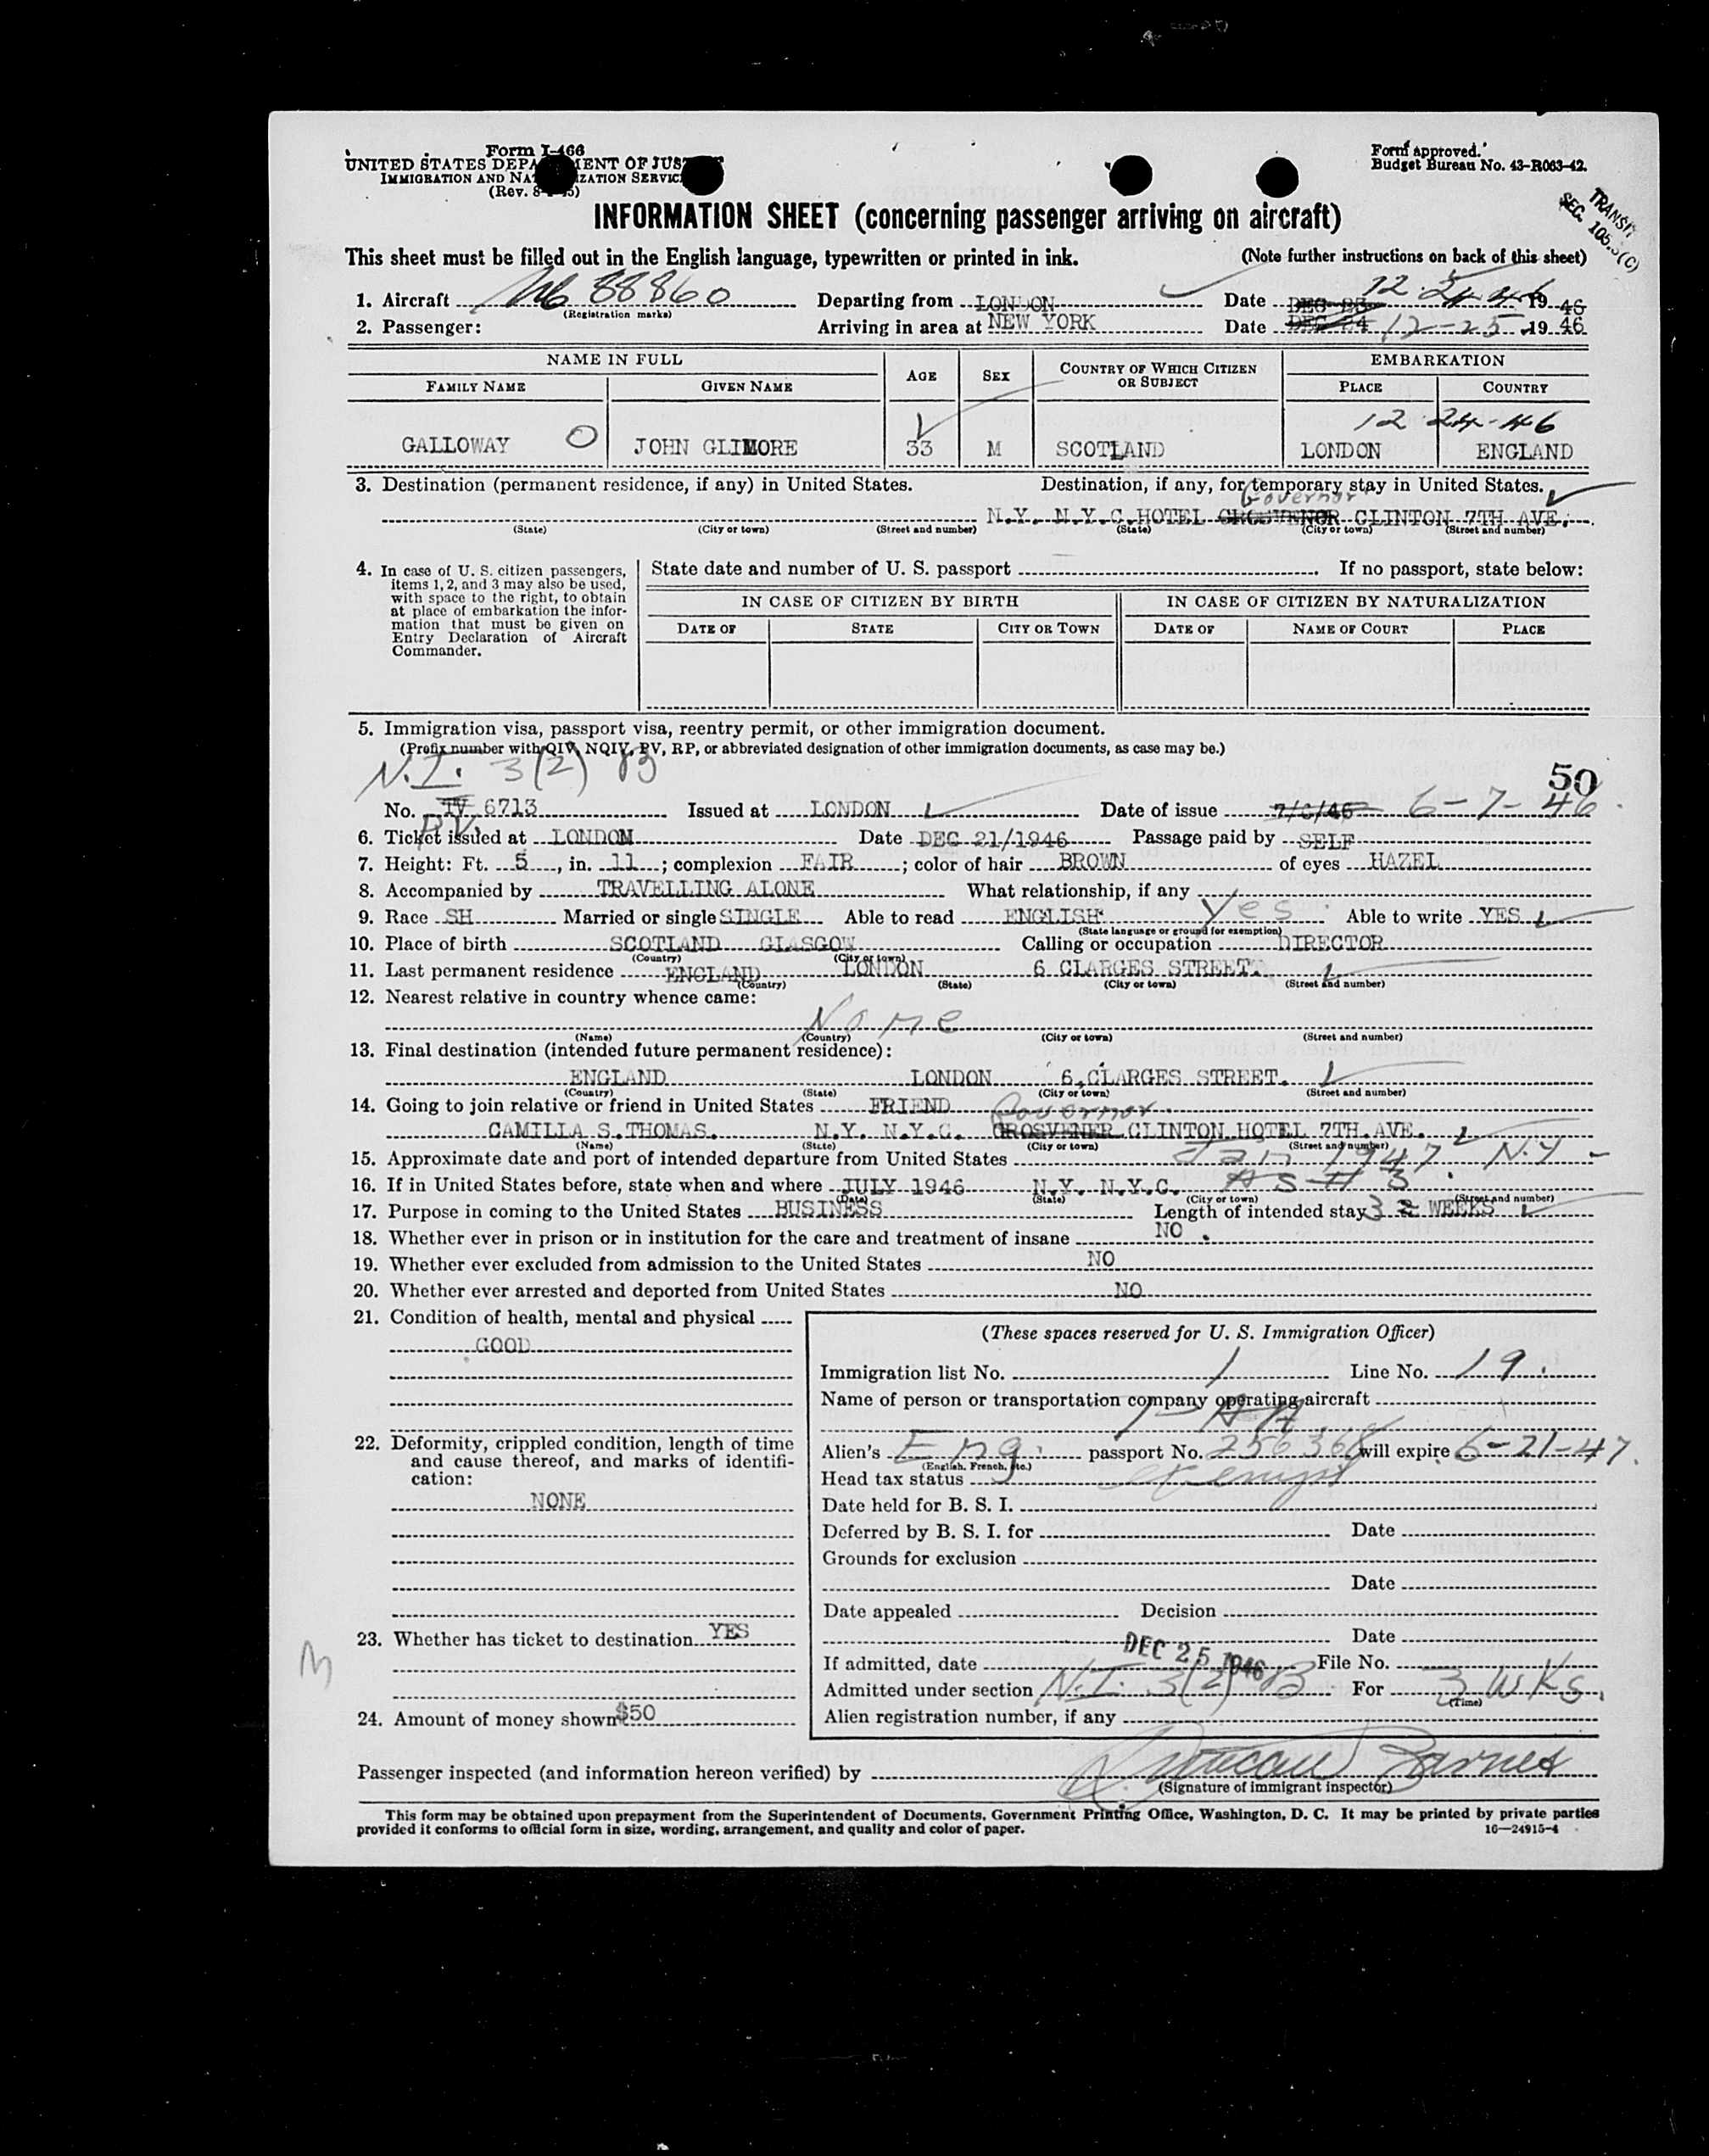 Form I-466
UNITED STATES DEPARTMENT OF JUSTICE
IMMIGRATION AND NATURALIZATION SERVICE
(Rev. 8-
Form approved.
Budget Bureau No. 43-R063-42.
TRANSIT
SEC. 105.3(C)
INFORMATION SHEET (concerning passenger arriving on aircraft)
This sheet must be filled out in the English language, typewritten or printed in ink. (Note further instructions on back of this sheet)
1. Aircraft 88860 Departing from LONDON Date DEC 23 12 24 46 19 46
(Registration marks)
2. Passenger: Arriving in area at NEW YORK Date DEC 24 12-25 19 46
NAME IN FULL AGE SEX COUNTRY OF WHICH CITIZEN OR SUBJECT EMBARKATION
FAMILY NAME GIVEN NAME PLACE COUNTRY
12 24-46
GALLOWAY O JOHN GLIMORE 33 M SCOTLAND LONDON ENGLAND
3. Destination (permanent residence, if any) in United States. Destination, if any, for temporary stay in United States.
Governor
N.Y. N.Y.C. HOTEL GROSVENOR CLINTON 7TH AVE.
(State) (City or town) (Street and number) (State) (City or town) (Street and number)
4. In case of U. S. citizen passengers, items 1, 2, and 3 may also be used, with space to the right, to obtain at place of embarkation the information that must be given on Entry Declaration of Aircraft Commander.
State date and number of U. S. passport If no passport, state below:
IN CASE OF CITIZEN BY BIRTH IN CASE OF CITIZEN BY NATURALIZATION
DATE OF STATE CITY OR TOWN DATE OF NAME OF COURT PLACE
5. Immigration visa, passport visa, reentry permit, or other immigration document.
(Prefix number with QIV, NQIV, PV, RP, or abbreviated designation of other immigration documents, as case may be.)
N.I. 3(2) B
50
No. TV 6713 Issued at LONDON Date of issue 7/6/46 6-7-46
P.V.
6. Ticket issued at LONDON Date DEC 21/1946 Passage paid by SELF
7. Height: Ft. 5, in. 11; complexion FAIR; color of hair BROWN of eyes HAZEL
8. Accompanied by TRAVELLING ALONE What relationship, if any
9. Race SH Married or single SINGLE Able to read ENGLISH Yes Able to write YES
(State language or ground for exemption)
10. Place of birth SCOTLAND GLASGOW Calling or occupation DIRECTOR
(Country) (City or town)
11. Last permanent residence ENGLAND LONDON 6 CLARGES STREET.
(Country) (State) (City or town) (Street and number)
12. Nearest relative in country whence came:
None
(Name) (Country) (City or town) (Street and number)
13. Final destination (intended future permanent residence):
ENGLAND LONDON 6, CLARGES STREET.
(Country) (State) (City or town) (Street and number)
14. Going to join relative or friend in United States FRIEND
Governor
CAMILLA S. THOMAS. N.Y. N.Y.C. GROSVENER CLINTON HOTEL 7TH. AVE.
(Name) (State) (City or town) (Street and number)
15. Approximate date and port of intended departure from United States Jan 1947 N.Y.
16. If in United States before, state when and where JULY 1946 N.Y. N.Y.C. AS # 3
(Date) (State) (City or town) (Street and number)
17. Purpose in coming to the United States BUSINESS Length of intended stay 3 2 WEEKS
18. Whether ever in prison or in institution for the care and treatment of insane NO.
19. Whether ever excluded from admission to the United States NO
20. Whether ever arrested and deported from United States NO
21. Condition of health, mental and physical
GOOD
22. Deformity, crippled condition, length of time and cause thereof, and marks of identification:
NONE
23. Whether has ticket to destination YES
M
24. Amount of money shown $50
(These spaces reserved for U. S. Immigration Officer)
Immigration list No. 1 Line No. 19.
Name of person or transportation company operating aircraft
Alien's Eng. passport No. 256368 will expire 6-21-47.
(English, French, etc.)
Head tax status exempt
Date held for B. S. I.
Deferred by B. S. I. for Date
Grounds for exclusion
Date
Date appealed Decision
Date
If admitted, date DEC 25 1946 File No.
Admitted under section N.I. 3(2) B For 3 WKS.
(Time)
Alien registration number, if any
Passenger inspected (and information hereon verified) by Barnes
(Signature of immigrant inspector)
This form may be obtained upon prepayment from the Superintendent of Documents, Government Printing Office, Washington, D. C. It may be printed by private parties
provided it conforms to official form in size, wording, arrangement, and quality and color of paper. 16—24915-4